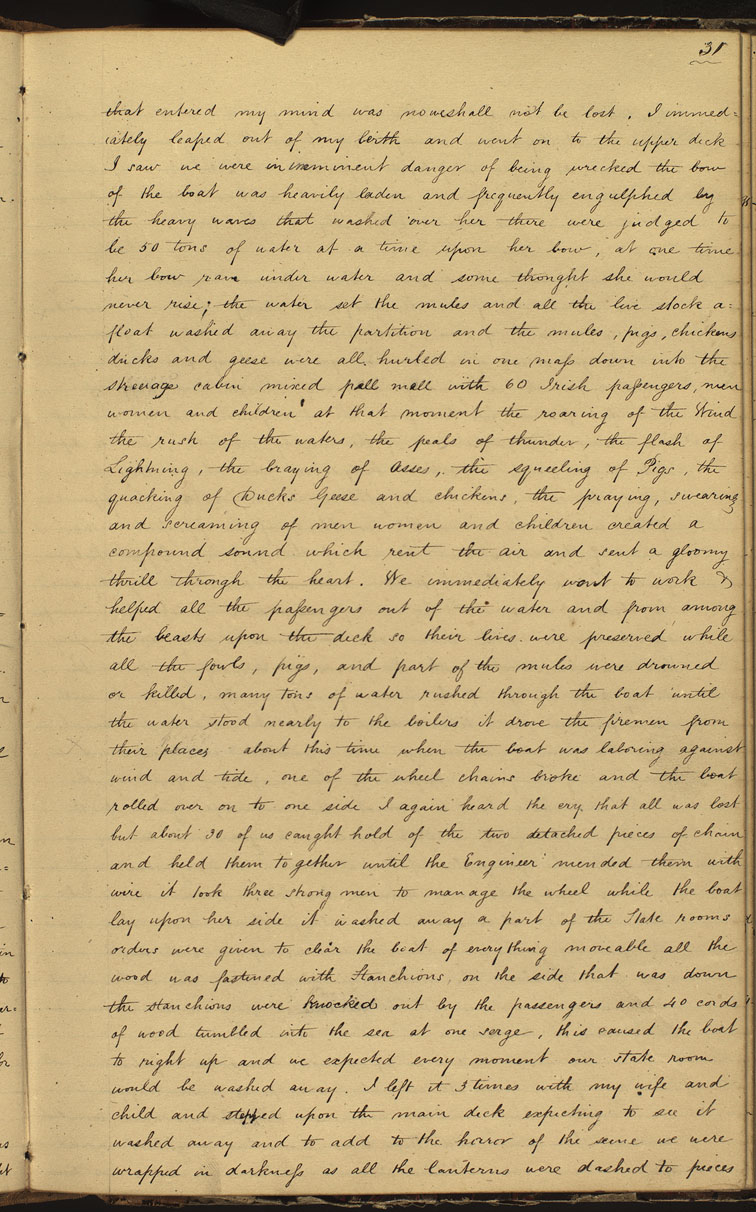 31
that entered my mind was now shall not be lost. I immed=
iately leaped out of my berth and went on to the upper deck
I saw we were in imminent danger of being wrecked the bow
of the boat was heavily laden and frequently engulphed by
the heavy waves that washed over her there were judged to
be 50 tons of water at a time upon her bow, at one time
her bow ran under water and some thought she would
never rise; the water set the mules and all the live stock a=
float washed away the partition and the mules, pigs, chickens
ducks and geese were all hurled in one mass down into the
steerage cabin mixed pell mell with 60 Irish passengers, men
women and children at that moment the roaring of the Wind
the rush of the waters, the peals of thunder, the flash of
Lightning, the braying of Asses, the squeeling of Pigs, the
quacking of Ducks Geese and chickens, the praying, swearing
and screaming of men women and children created a
compound sound which rent the air and sent a gloomy
thrill through the heart. We immediately went to work &
helped all the passengers out of the water and from among
the beasts upon the deck so their lives were preserved while
all the fowls, pigs, and part of the mules were drowned
or killed, many tons of water rushed through the boat until
the water stood nearly to the boilers it drove the firemen from
their places about this time when the boat was laboring against
wind and tide, one of the wheel chains broke and the boat
rolled over on to one side I again heard the cry that all was lost
but about 30 of us caught hold of the two detached pieces of chain
and held them together until the Engineer mended them with
wire it took three strong men to manage the wheel while the boat
lay upon her side it washed away a part of the State rooms
orders were given to clear the boat of everything moveable all the
wood was fastened with Stanchions on the side that was down
the stanchions were knocked out by the passengers and 40 cords
of wood tumbled into the sea at one serge, this caused the boat
to right up and we expected every moment our state room
would be washed away. I left it 3 times with my wife and
child and stepped upon the main deck expecting to see it
washed away and to add to the horror of the scene we were
wrapped in darkness as all the lanterns were dashed to pieces